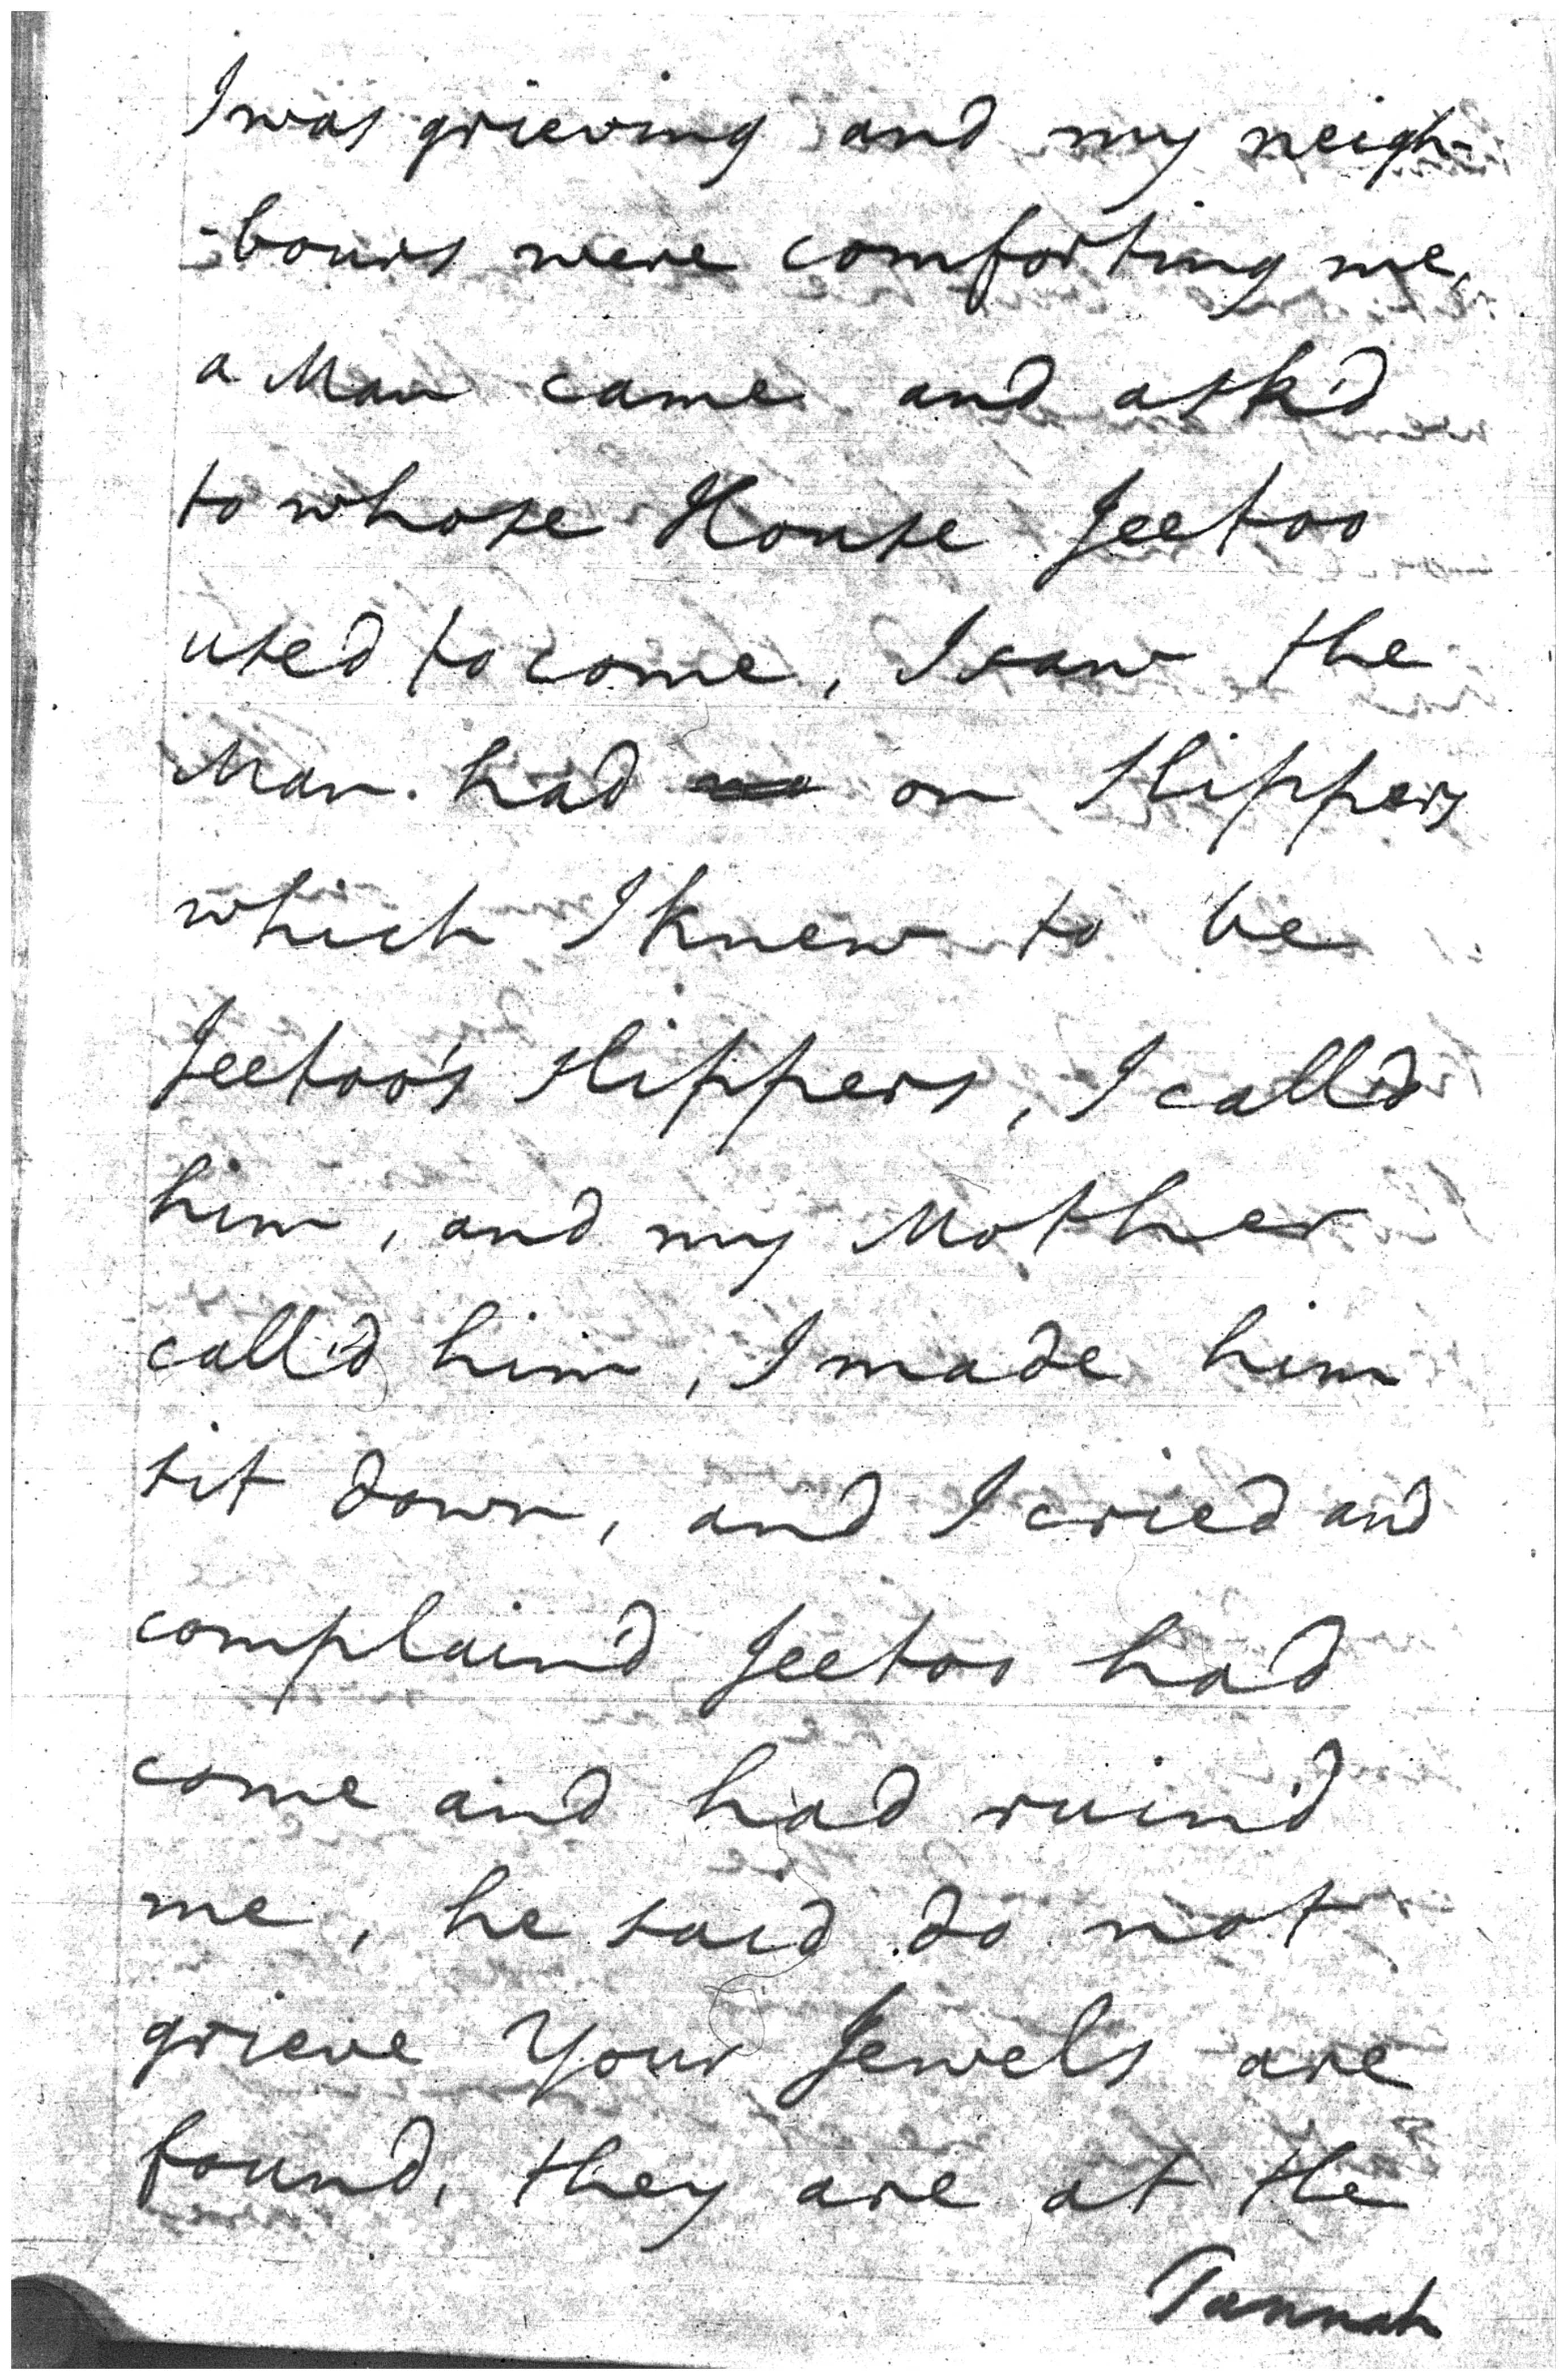 I was grieving and my neigh-
-bours were comforting me,
a Man came and ask'd
to whose House Jeetoo
used to come, I saw the
Man had on Slippers
which I knew to be
Jeetoo's Slippers, I call'd
him, and my Mother
call'd him, I made him
sit down, and I cried and
complain'd Jeetoo had
come and had ruin'd
me, he said do not
grieve Your Jewels are
found, they are at the
Tannah